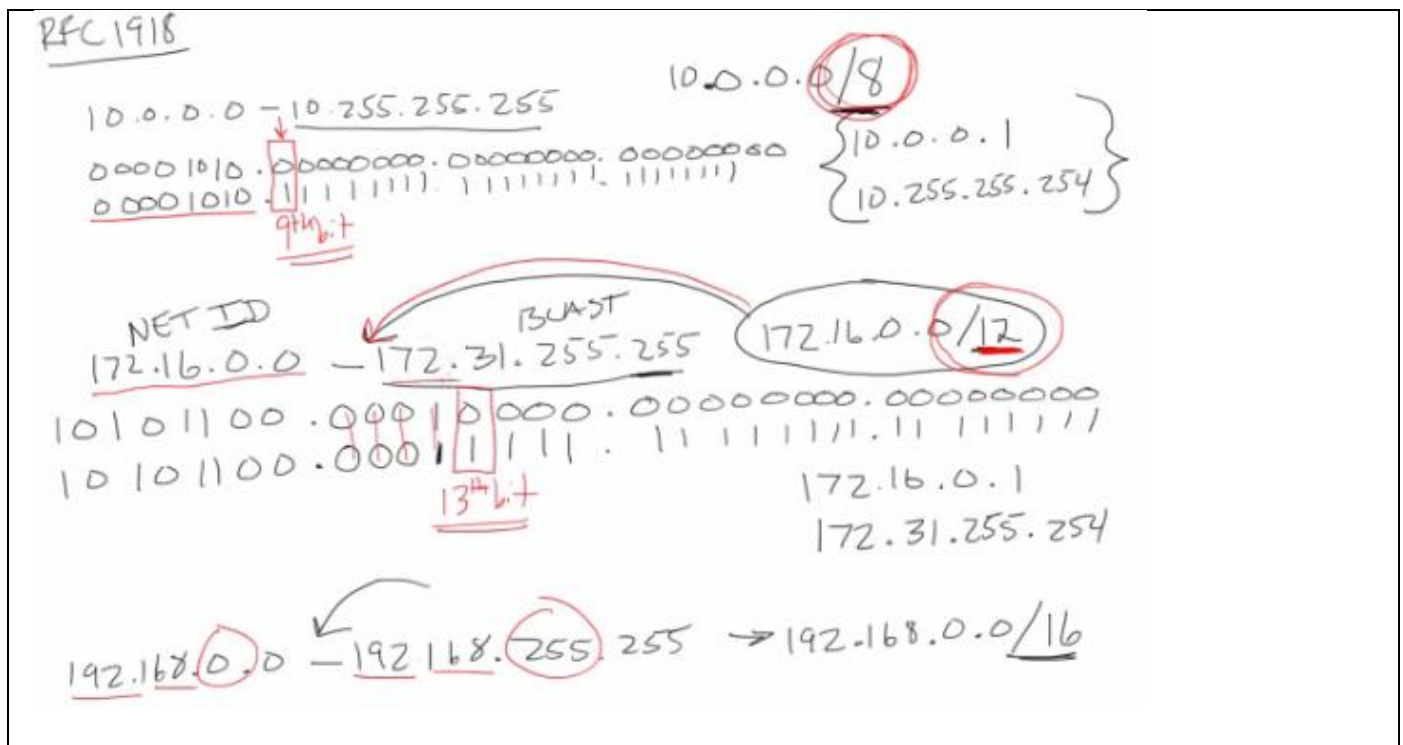 RFC 1918
10.0.0.0/8
10.0.0.0 - 10.255.255.255
00001010.00000000.00000000.00000000
00001010.11111111.11111111.11111111
9th bit
10.0.0.1
10.255.255.254
NET ID
BCAST
172.16.0.0 - 172.31.255.255
172.16.0.0/12
10101100.00010000.00000000.00000000
10101100.00011111.11111111.11111111
13th bit
172.16.0.1
172.31.255.254
192.168.0.0 - 192 168.255.255 → 192.168.0.0/16